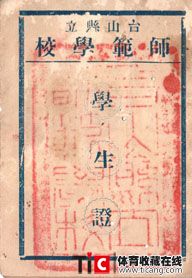 台山縣立
師範學校
學生證
TIC 体育收藏在线
www.ticang.com